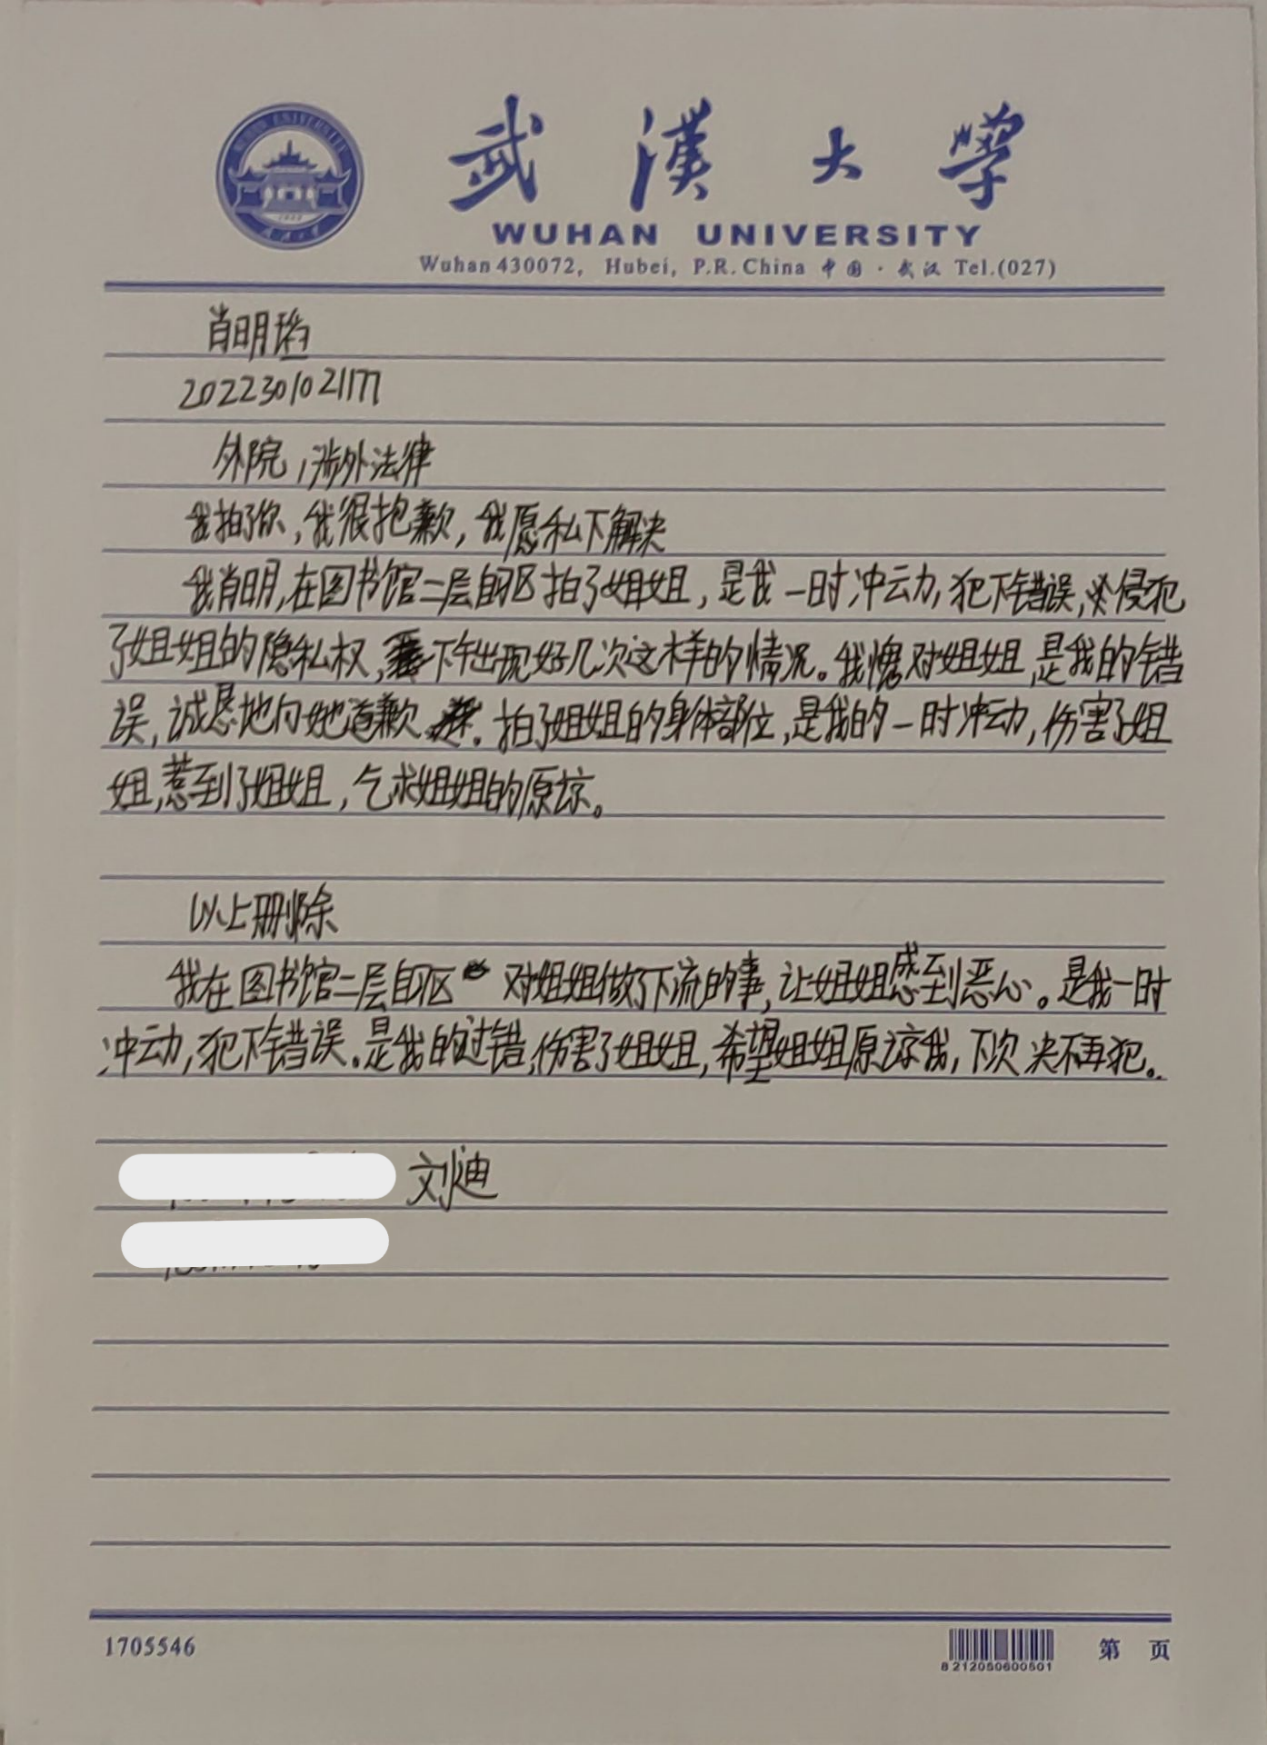 武漢大學
WUHAN UNIVERSITY
Wuhan 430072, Hubei, P.R. China 中国·武汉 Tel.(027)
肖明瑫
2022301021177
外院,涉外法律
我拍了你,我很抱歉,我愿私下解决
我肖明,在图书馆二层自习区拍了姐姐,是我一时冲动,犯下错误,侵犯
了姐姐的隐私权,下午出现好几次这样的情况。我愧对姐姐,是我的错
误,诚恳地向她道歉.拍了姐姐的身体部位,是我的一时冲动,伤害了姐
姐,惹到了姐姐,乞求姐姐的原谅。
以上删除
我在图书馆二层自习区对姐姐做了下流的事,让姐姐感到恶心。是我一时
冲动,犯下错误.是我的过错,伤害了姐姐,希望姐姐原谅我,下次决不再犯。
刘迪
1705546
8212050600501
第 页